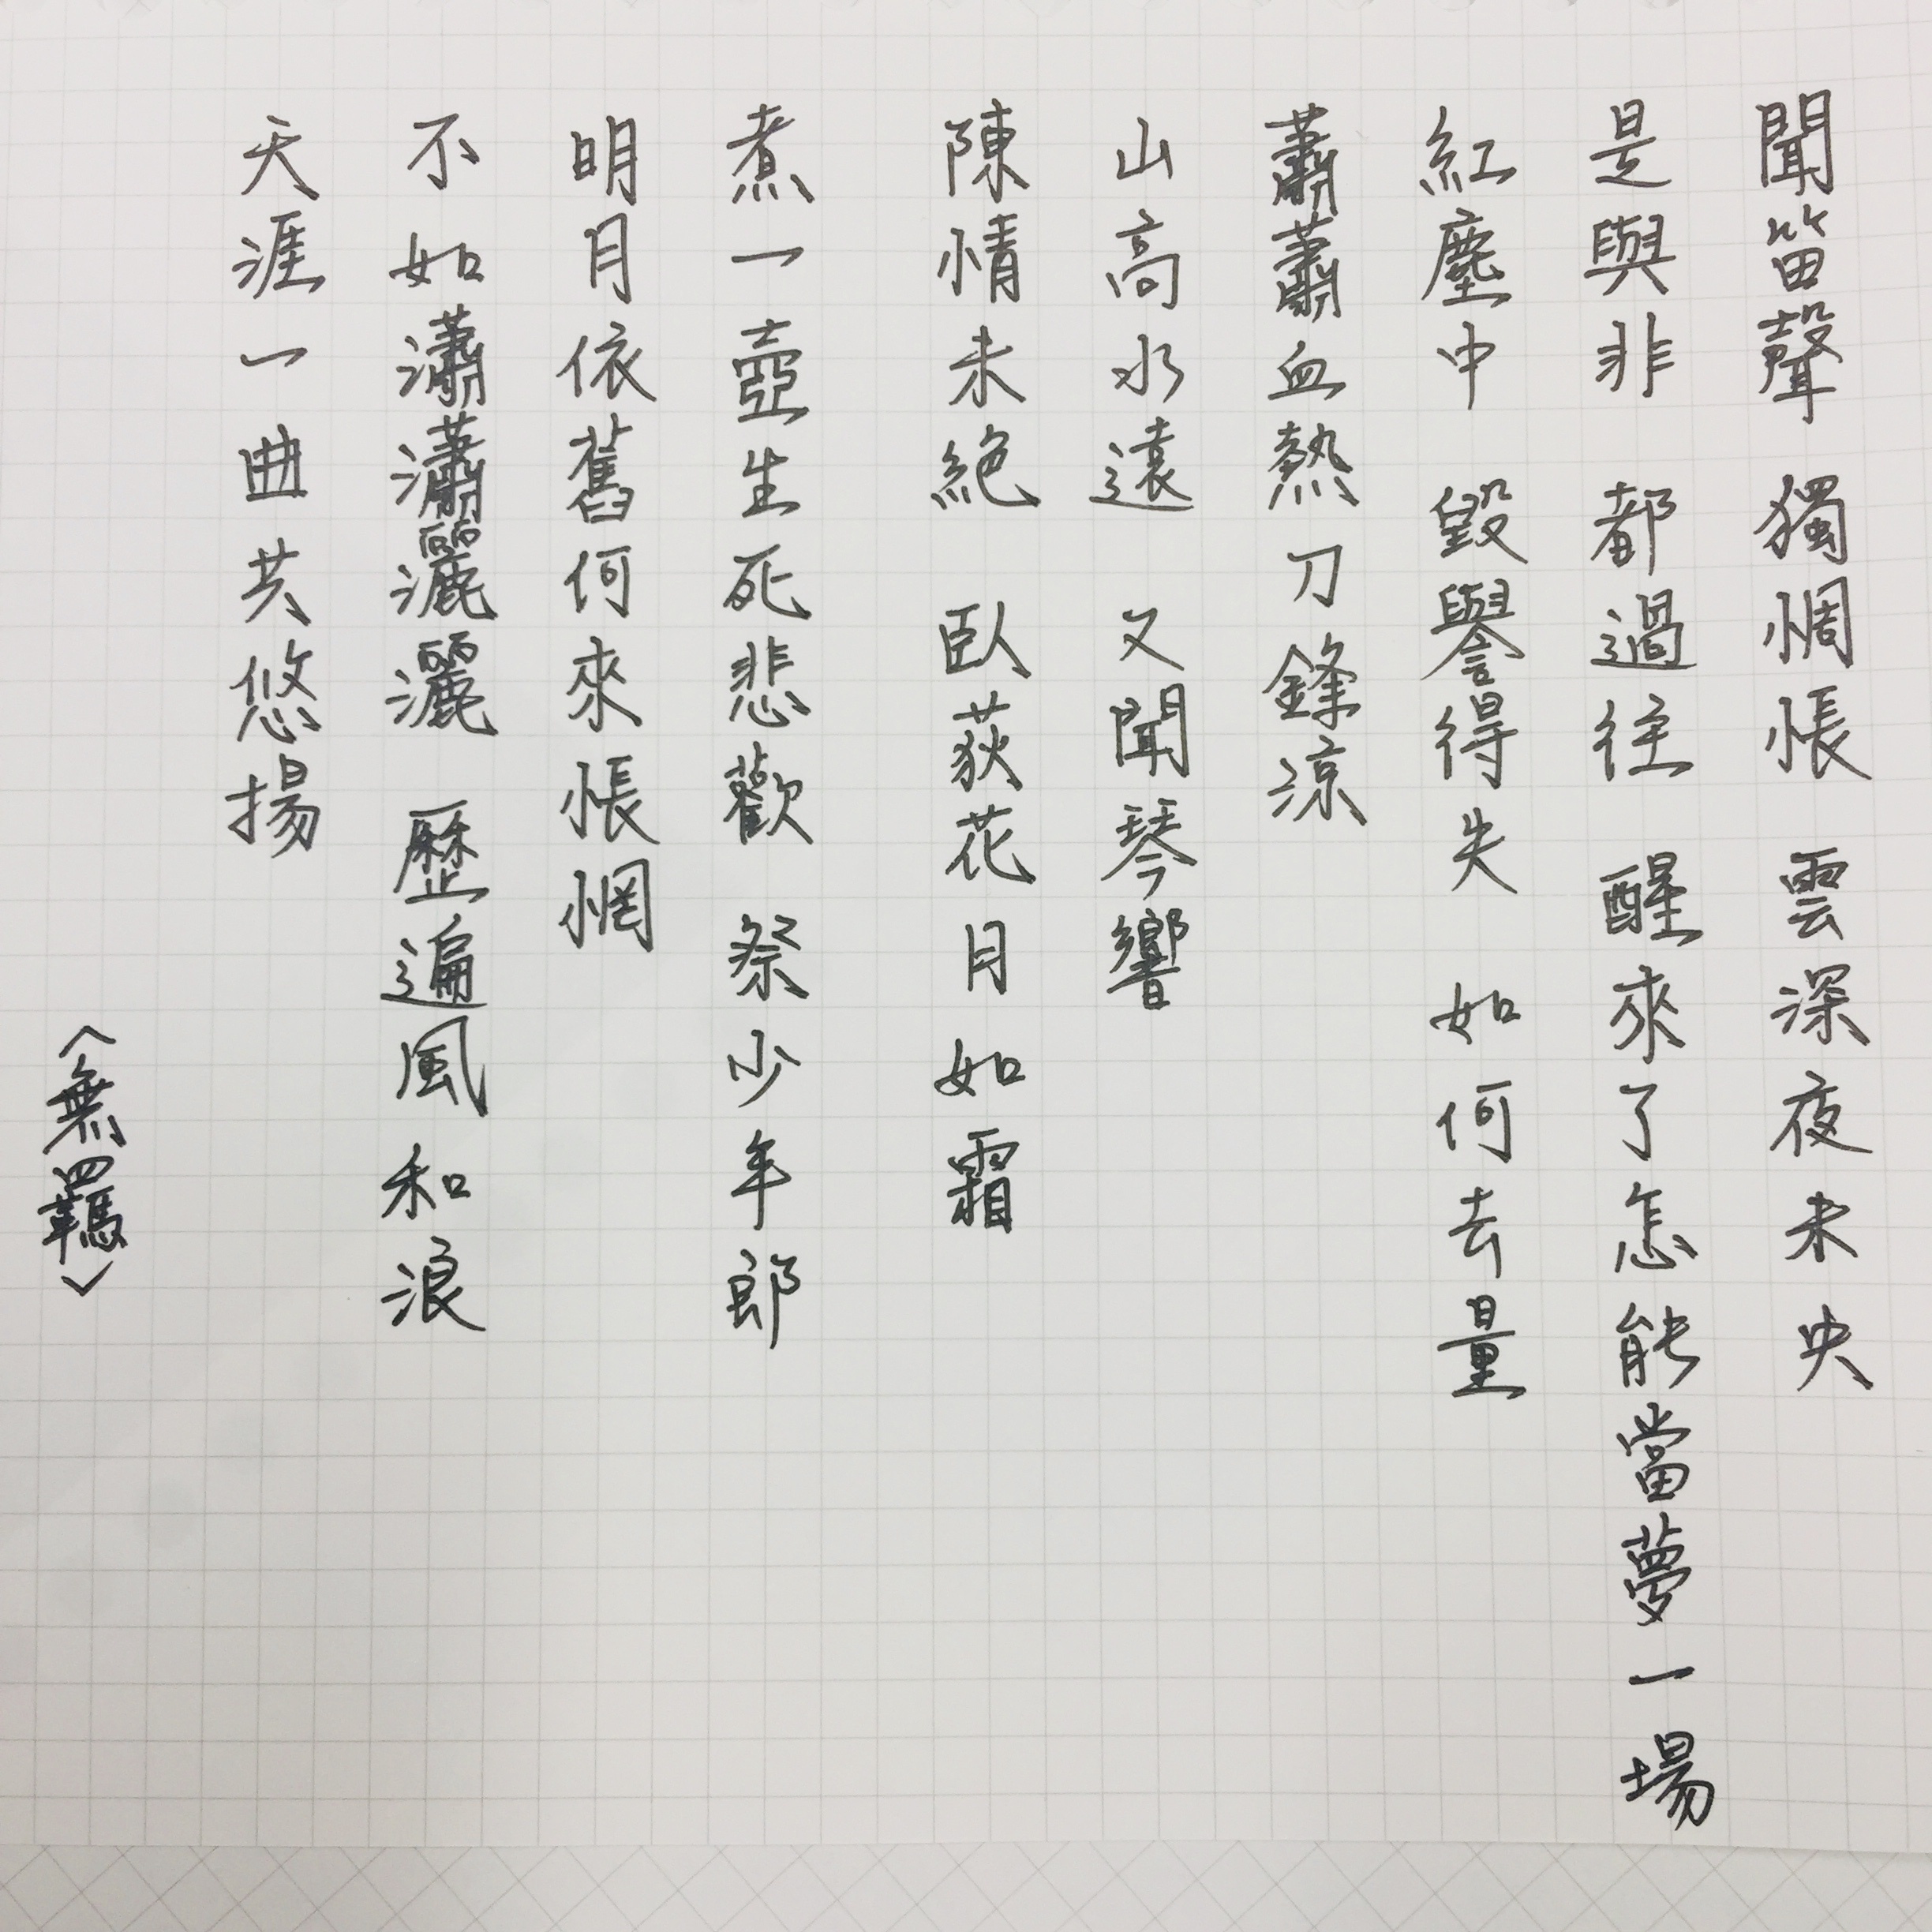 聞笛聲 獨惆悵 雲深夜未央
是與非 都過往 醒來了怎能當夢一場
紅塵中 毀譽得失 如何去量
蕭蕭血熱刀鋒涼
山高水遠 又聞琴響
陳情未絕 臥荻花月如霜
煮一壺生死悲歡 祭少年郎
明月依舊何來悵惘
不如瀟瀟灑灑 歷遍風和浪
天涯一曲共悠揚
〈無羈〉